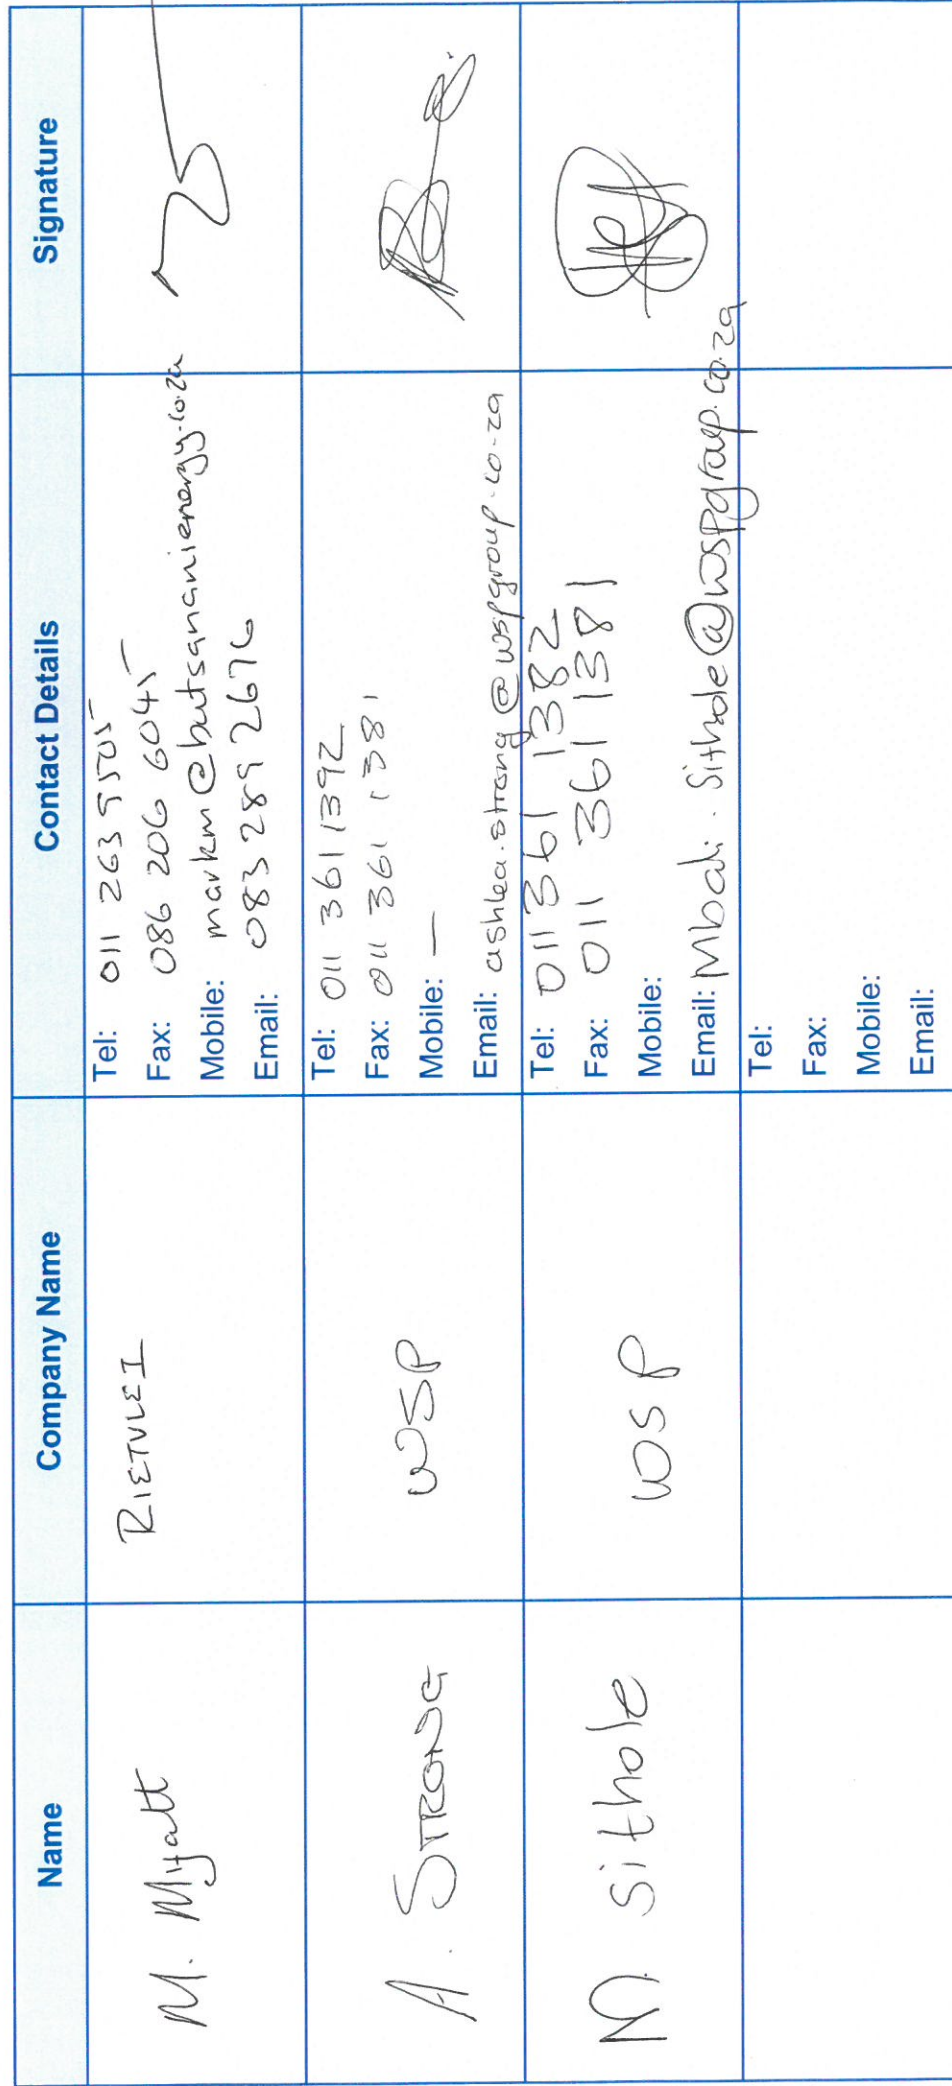 Name Company Name Contact Details Signature
M. Myatt
RIETVLEI
Tel: 011 263 9505
Fax: 086 206 6045
Mobile: markm@butsananienergy.co.za
Email: 083 289 2676
A. STRONG
WSP
Tel: 011 361 1392
Fax: 011 361 1381
Mobile: —
Email: ashlea.strong@wspgroup.co.za
M. Sithole
WSP
Tel: 011 361 1382
Fax: 011 361 1381
Mobile:
Email: Mbali.Sithole@wspgroup.co.za
Tel:
Fax:
Mobile:
Email: